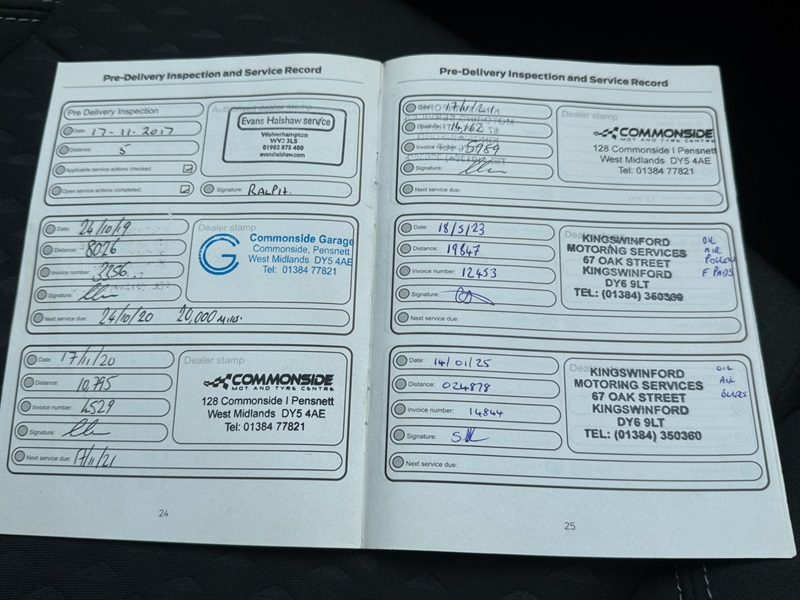 Pre-Delivery Inspection and Service Record
Pre Delivery Inspection
Date: 17-11-2017
Distance: 5
Applicable service actions checked:
Open service actions completed:
Authorised dealer stamp
Evans Halshaw service
Wolverhampton
WV2 3LS
01902 875 400
evanshalshaw.com
Signature: RALPH.
Date: 24/10/19
Distance: 8026
Invoice number: 3256
Signature:
Next service due: 24/10/20 20,000 miles.
Dealer stamp
Commonside Garage
Commonside, Pensnett
West Midlands DY5 4AE
Tel: 01384 77821
Date: 17/11/20
Distance: 10,795
Invoice number: 4529
Signature:
Next service due: 17/11/21
Dealer stamp
COMMONSIDE
MOT AND TYRE CENTRE
128 Commonside I Pensnett
West Midlands DY5 4AE
Tel: 01384 77821
24
Pre-Delivery Inspection and Service Record
Date: 17/11/21
Distance: 14,162
Invoice number: 5989
Signature:
Next service due:
Dealer stamp
COMMONSIDE
MOT AND TYRE CENTRE
128 Commonside I Pensnett
West Midlands DY5 4AE
Tel: 01384 77821
Date: 18/5/23
Distance: 19847
Invoice number: 12453
Signature:
Next service due:
Dealer stamp
KINGSWINFORD
MOTORING SERVICES
67 OAK STREET
KINGSWINFORD
DY6 9LT
TEL: (01384) 350360
OIL
AIR
POLLEN
F PADS
Date: 14/01/25
Distance: 024878
Invoice number: 14844
Signature:
Next service due:
KINGSWINFORD
MOTORING SERVICES
67 OAK STREET
KINGSWINFORD
DY6 9LT
TEL: (01384) 350360
OIL
25